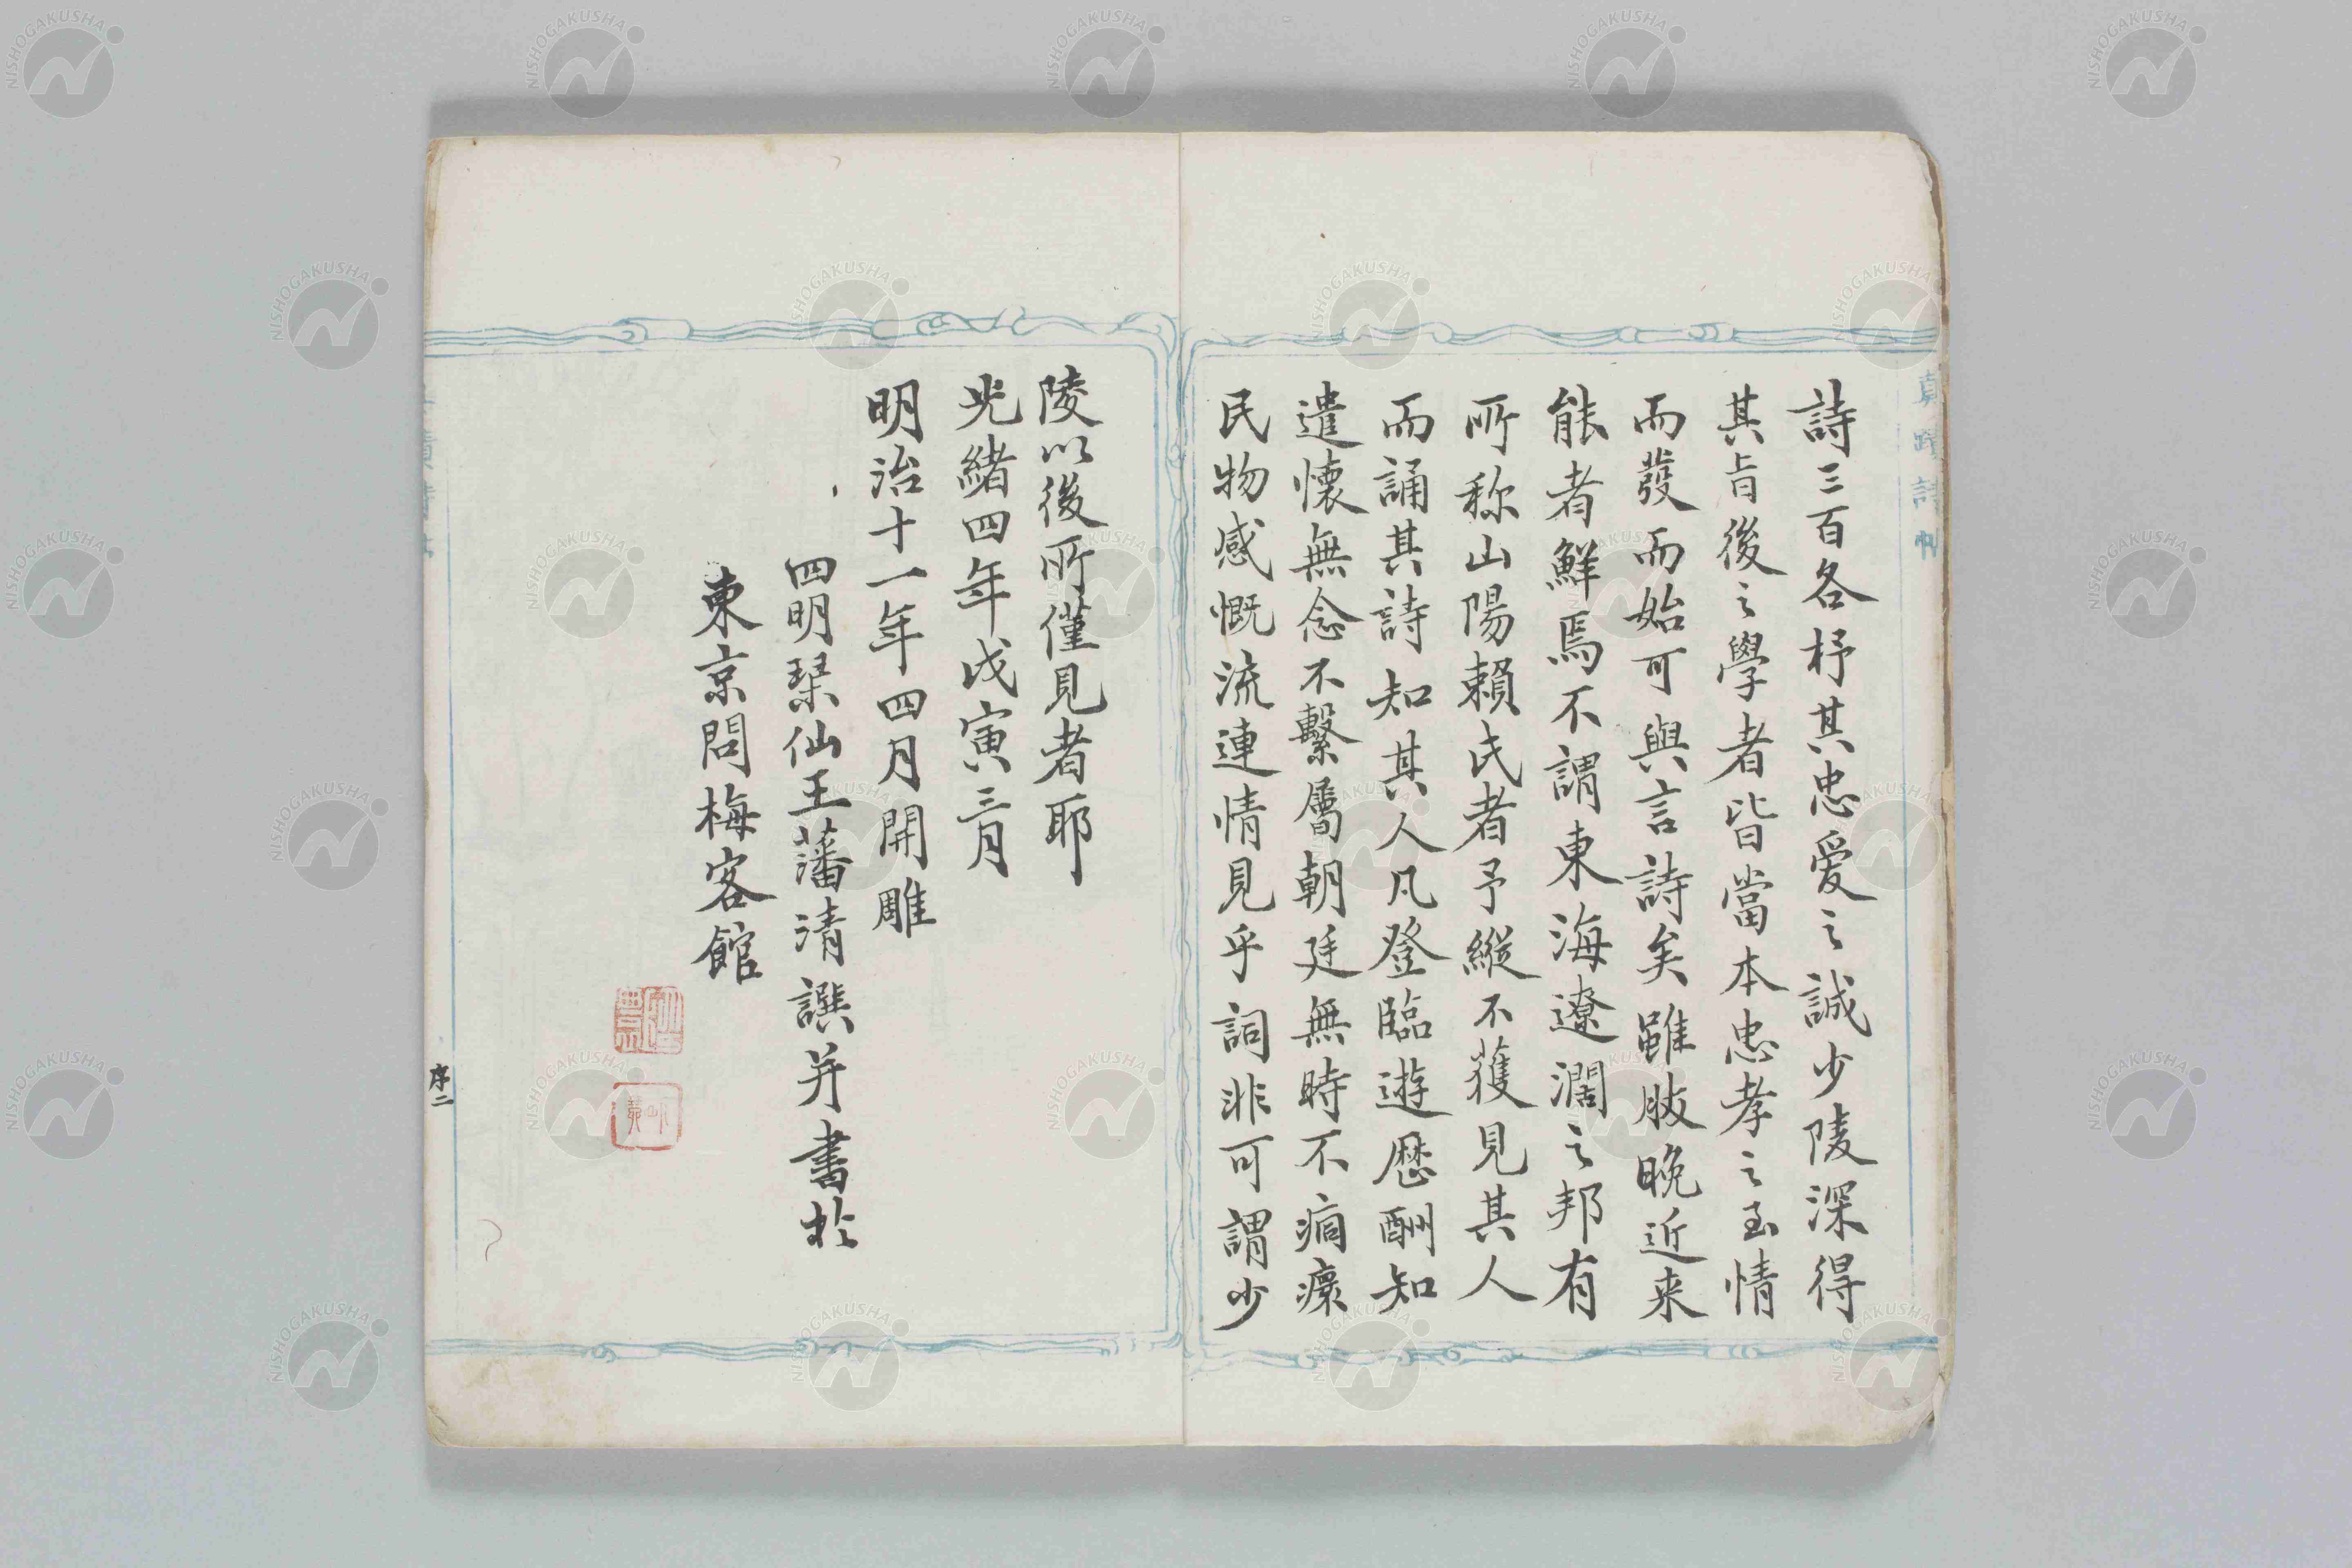 詩三百各抒其忠愛之誠少陵深得
其旨後之學者皆當本忠孝之至情
而發而始可與言詩矣雖肢晚近来
能者鮮焉不謂東海遼濶之邦有
所称山陽賴氏者予縱不獲見其人
而誦其詩知其人凡登臨遊歷酬知
遣懷無念不繫屬朝廷無時不痌瘝
民物感慨流連情見乎詞非可謂少
陵以後所僅見者耶
光緒四年戊寅三月
明治十一年四月開雕
四明琹仙王藩清譔并書於
東京問梅客館
序二
真蹟詩帖
NISHOGAKUSHA